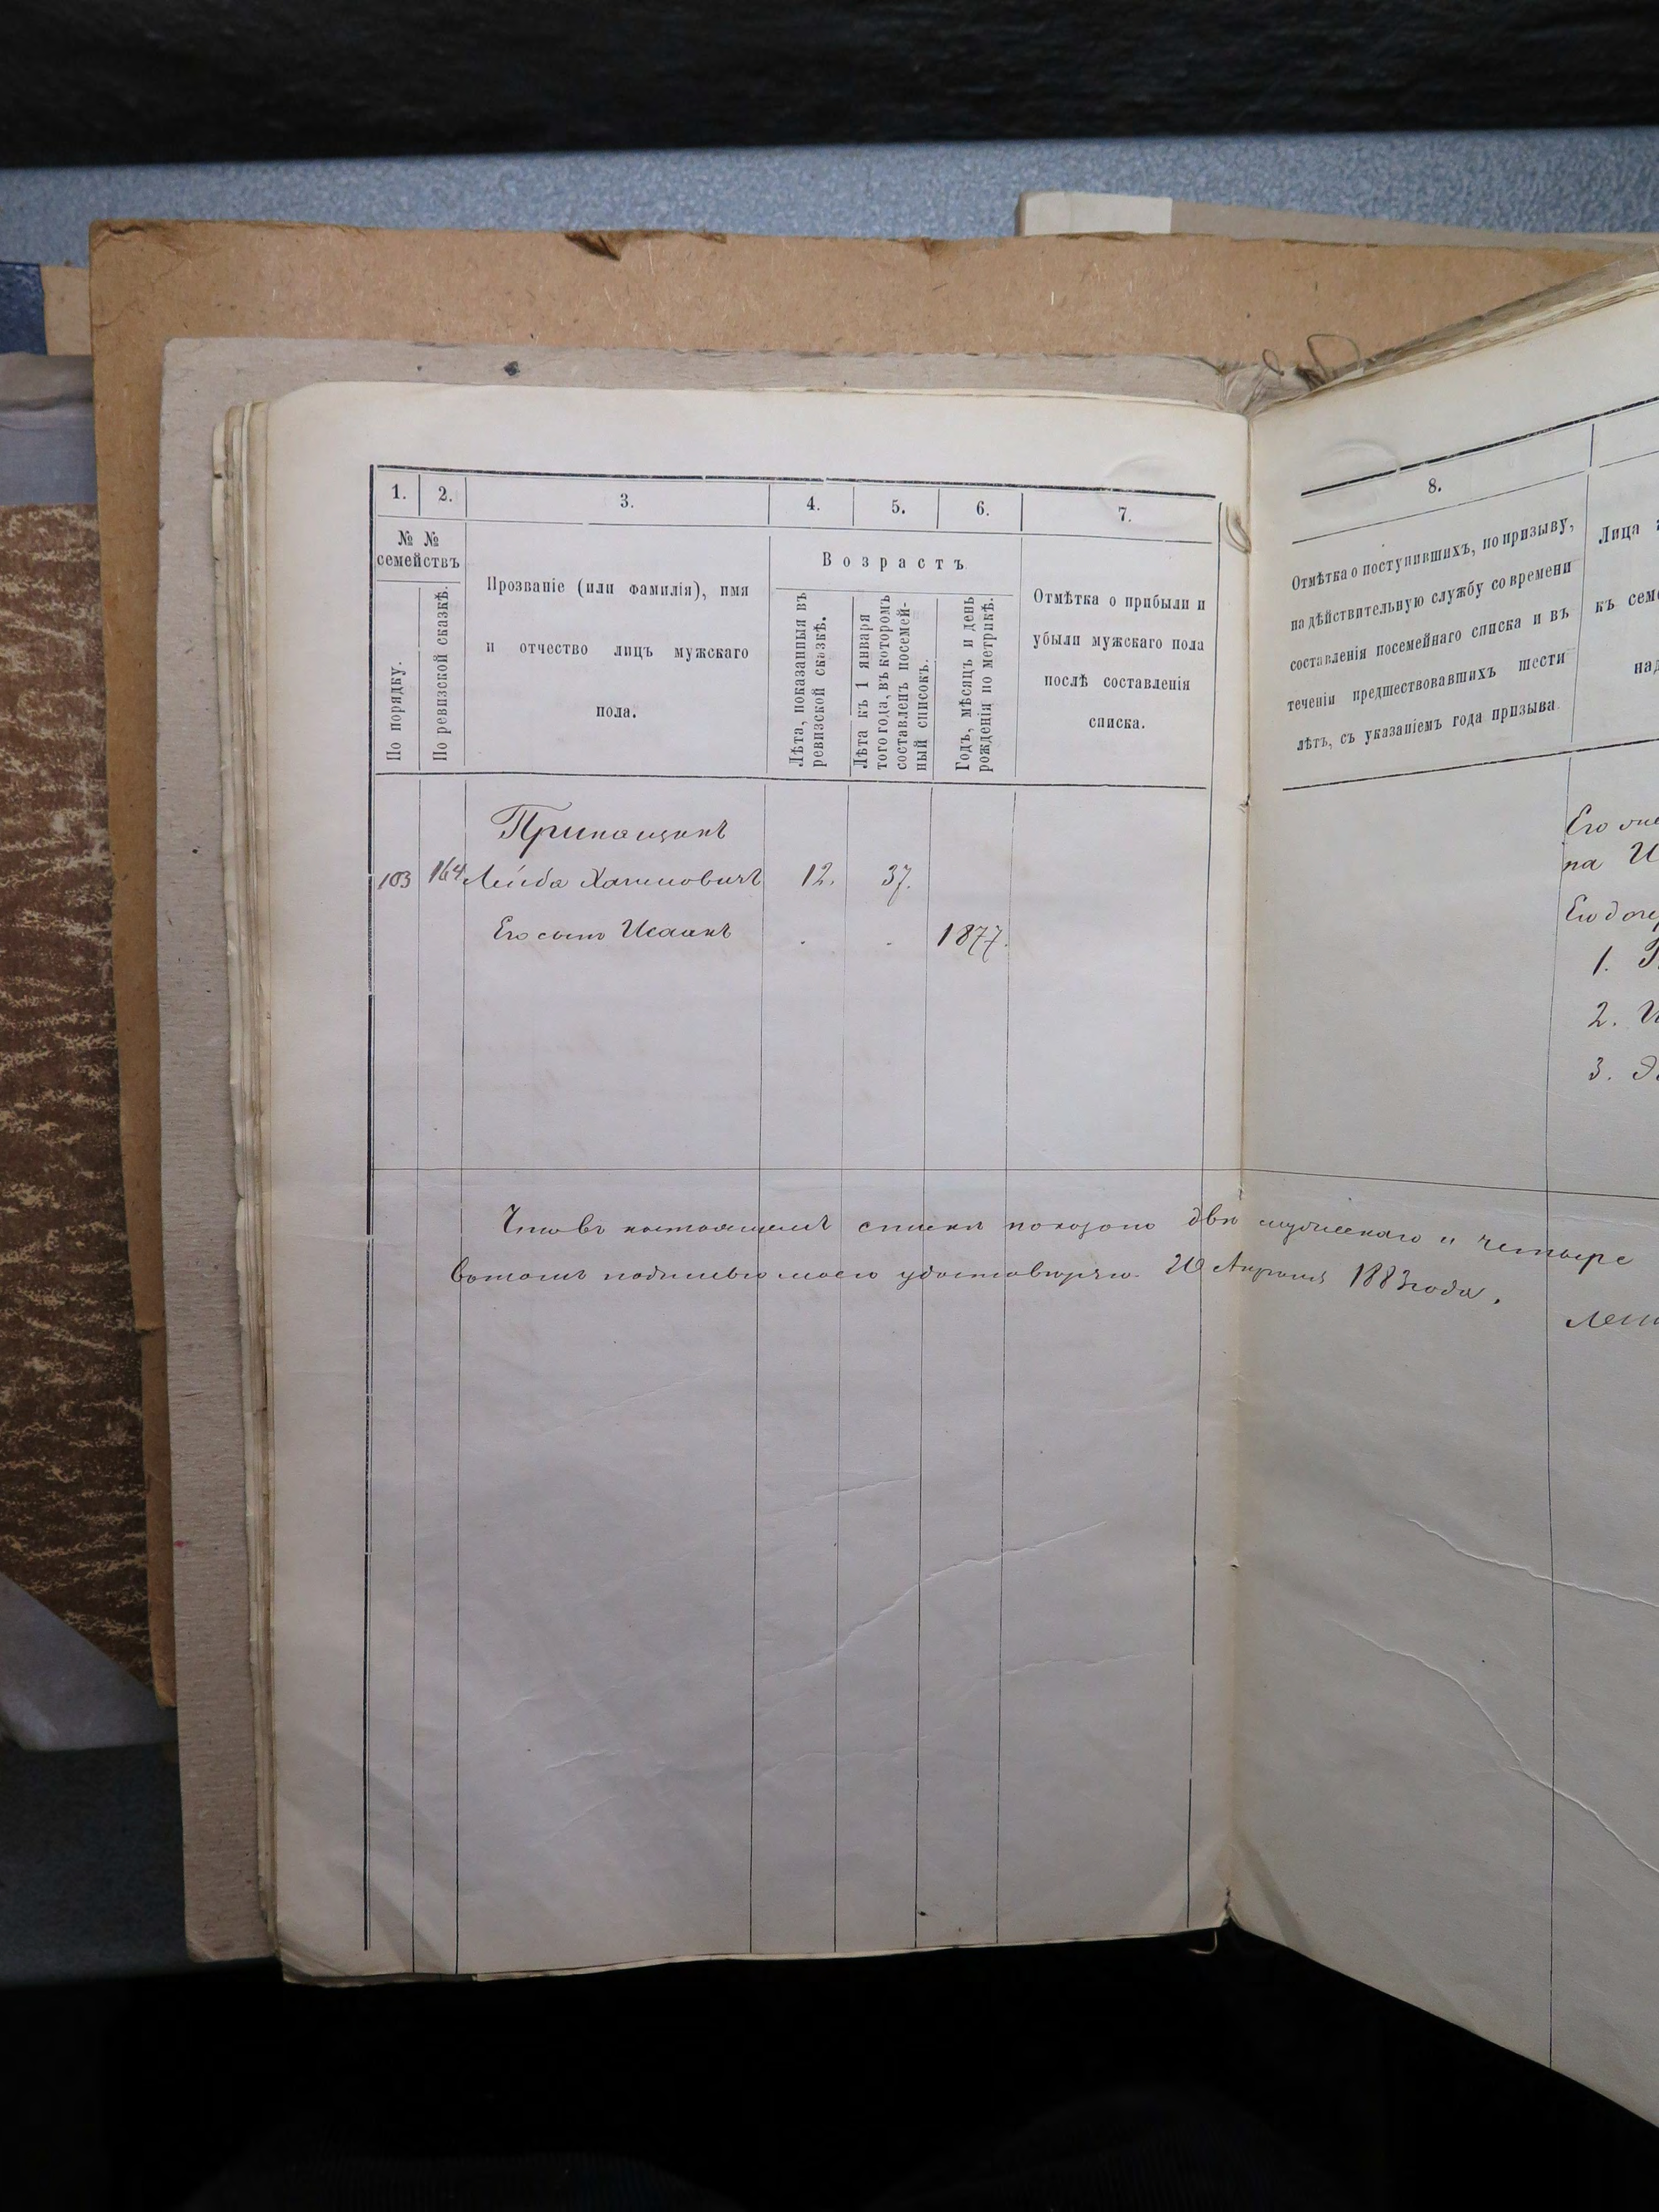 1. 2. 3. 4. 5. 6. 7.
№ № семействъ
По порядку.
По ревизской сказкѣ.
Прозваніе (или фамилія), имя
и отчество лицъ мужскаго
пола.
Возрастъ
Лѣта, показанныя въ
ревизской сказкѣ.
Лѣта къ 1 января
того года, въ которомъ
составленъ посемей-
ный списокъ.
Годъ, мѣсяцъ и день
рожденія по метрикѣ.
Отмѣтка о прибыли и
убыли мужскаго пола
послѣ составленія
списка.
103 164 Лейба Хаимовичъ 12. 37.
Его сынъ Исаакъ . . 1877.
Что въ настоящемъ спискѣ показано двѣ мужескаго и четыре
въ томъ подписью моею удостовѣряю. Апрѣля 1883 года.
8.
Отмѣтка о поступившихъ, по призыву,
на дѣйствительную службу со времени
составленія посемейнаго списка и въ
теченіи предшествовавшихъ шести
лѣтъ, съ указаніемъ года призыва
Лица
къ
Его
на
Его
1.
2.
3.